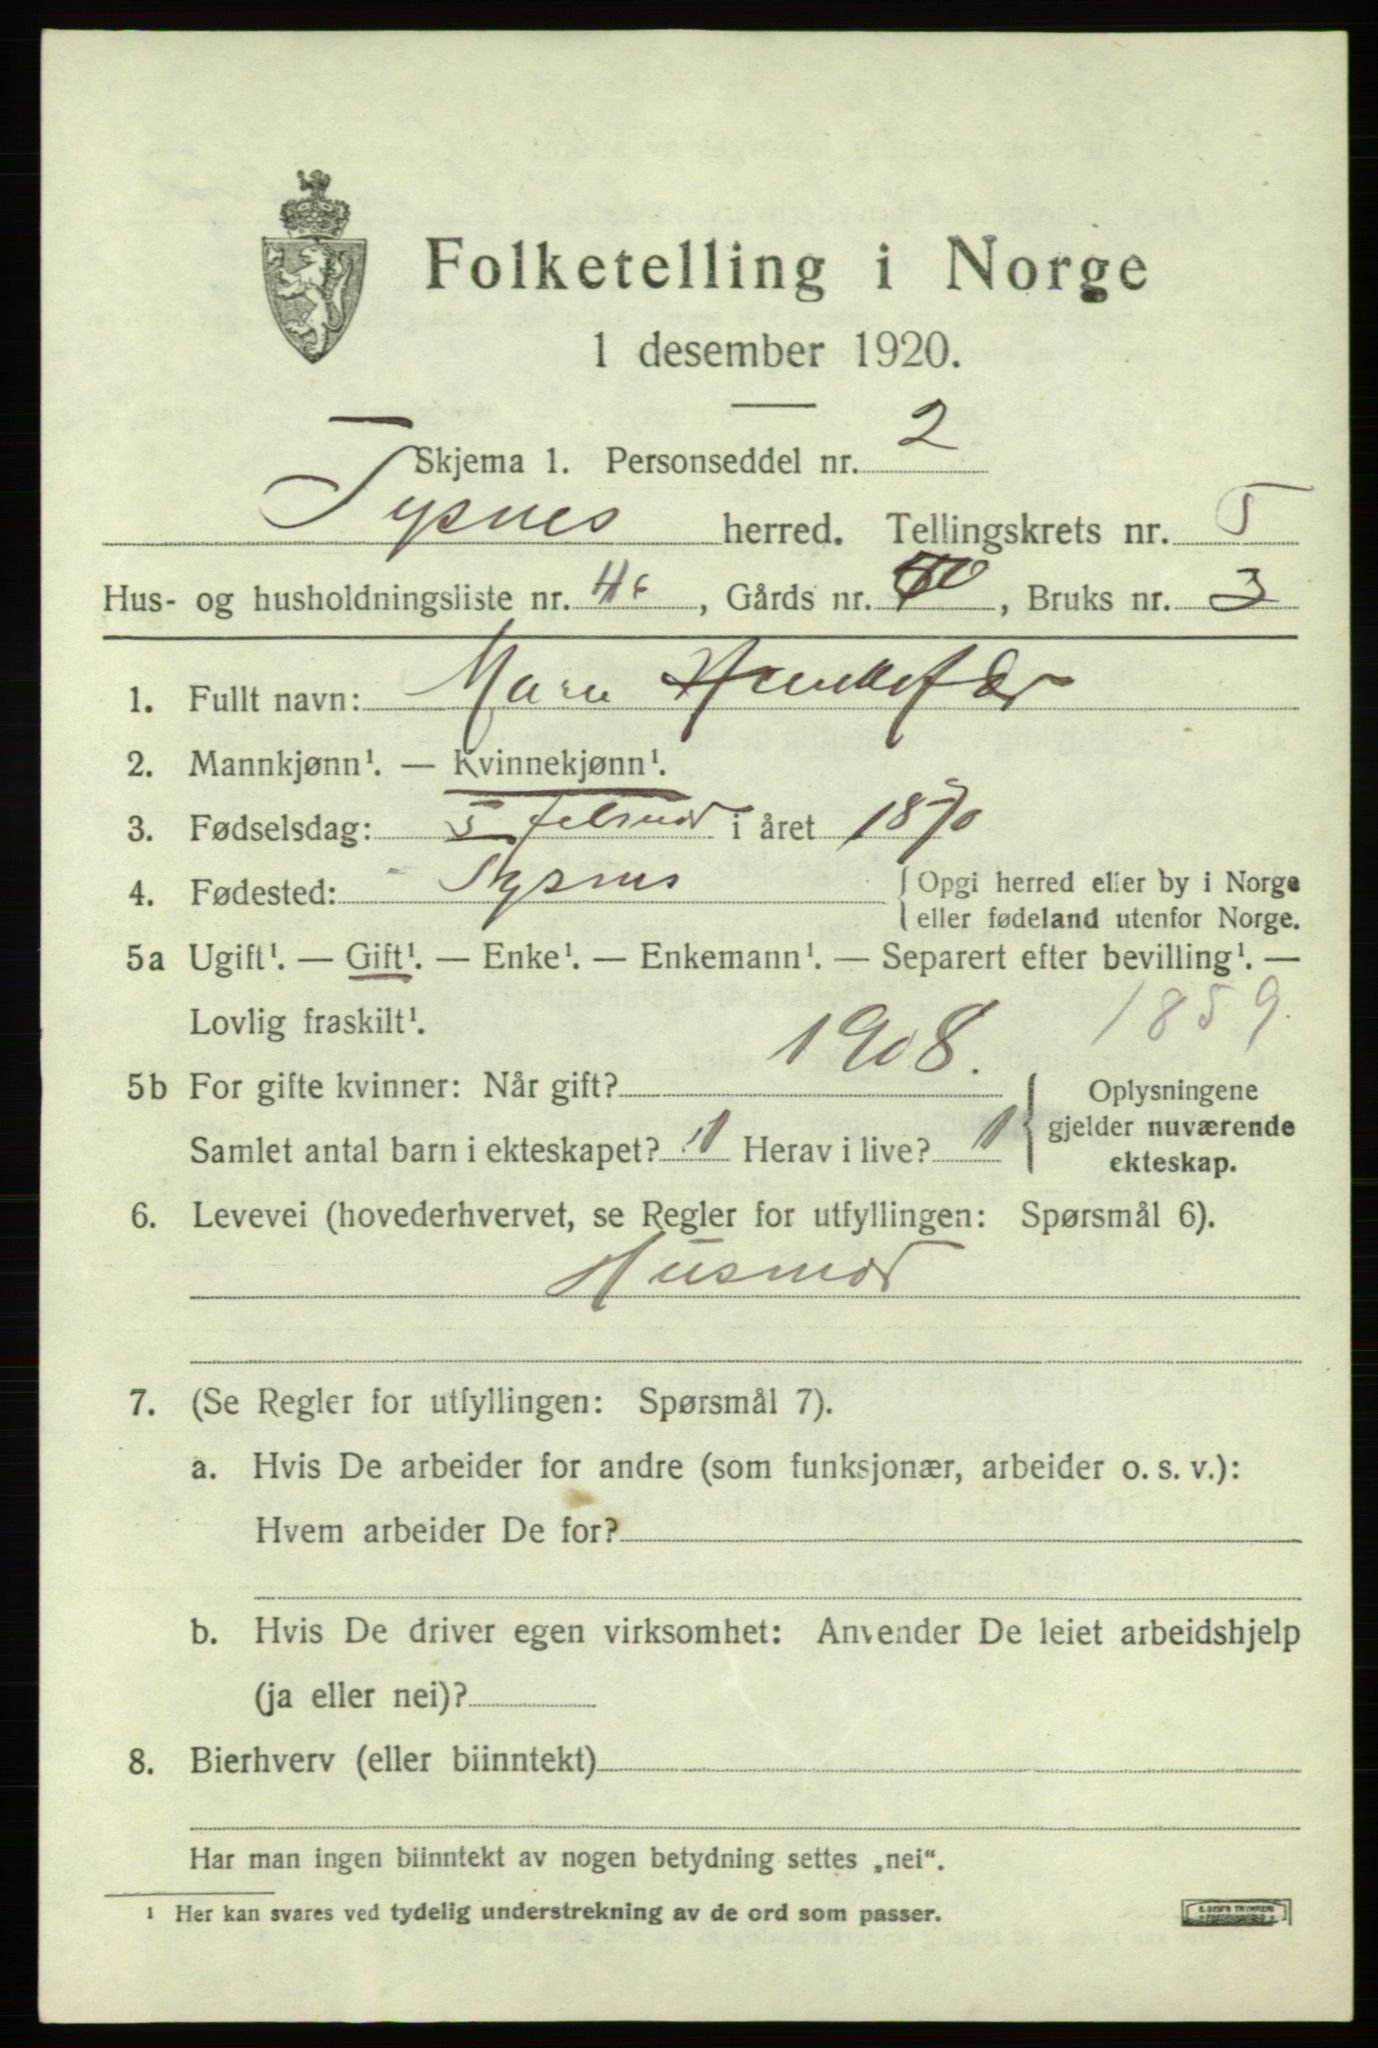 Folketelling i Norge
1 desember 1920.
Skjema 1. Personseddel nr. 2
Tysnes herred. Tellingskrets nr. 5
Hus- og husholdningsliste nr. , Gårds nr. , Bruks nr. 3
1. Fullt navn:
2. Mannkjønn¹. — Kvinnekjønn¹.
3. Fødselsdag: 5 februar i året 1870
4. Fødested: Tysnes {Opgi herred eller by i Norge
eller fødeland utenfor Norge.
5a Ugift¹. — Gift¹. — Enke¹. — Enkemann¹. — Separert efter bevilling¹. —
Lovlig fraskilt¹. 1859.
5b For gifte kvinner: Når gift? 1908.
Samlet antal barn i ekteskapet? 1 Herav i live? 1
{Oplysningene
gjelder nuværende
ekteskap.
6. Levevei (hovederhvervet, se Regler for utfyllingen: Spørsmål 6).
Husmor
7. (Se Regler for utfyllingen: Spørsmål 7).
a. Hvis De arbeider for andre (som funksjonær, arbeider o. s. v.):
Hvem arbeider De for?
b. Hvis De driver egen virksomhet: Anvender De leiet arbeidshjelp
(ja eller nei)?
8. Bierhverv (eller biinntekt)
Har man ingen biinntekt av nogen betydning settes „nei“.
¹ Her kan svares ved tydelig understrekning av de ord som passer.